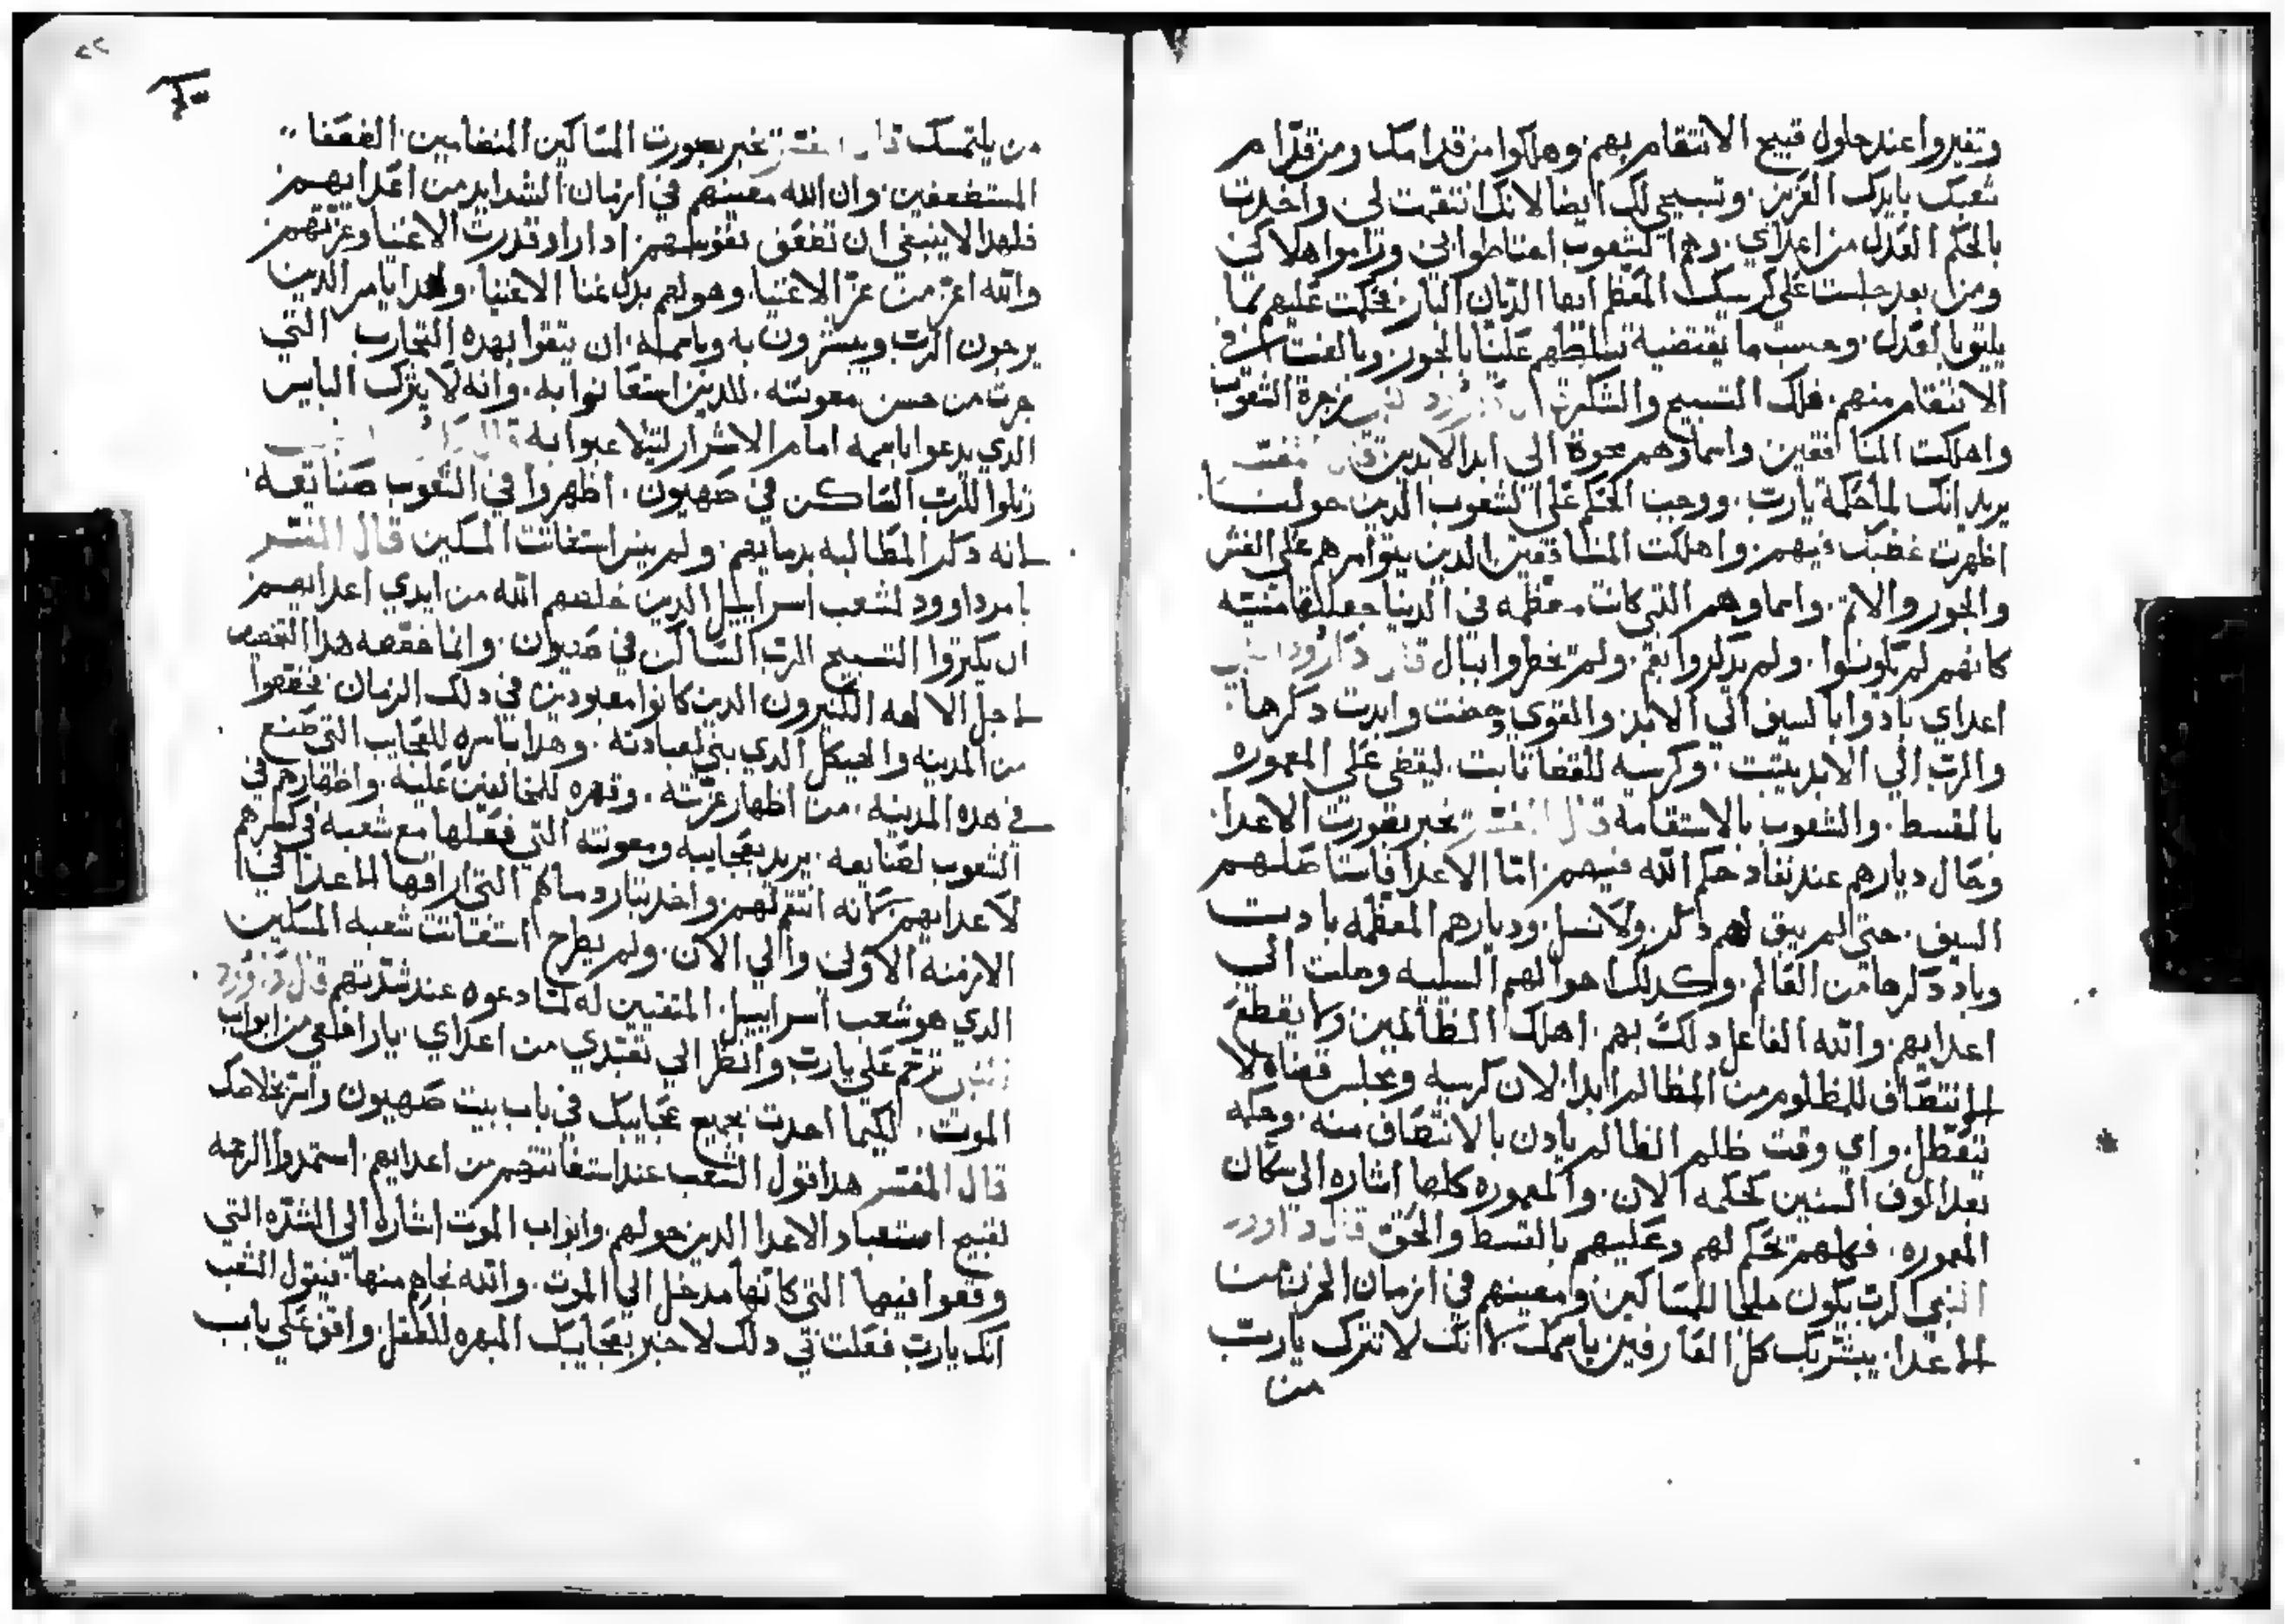 وتغيروا عند حلول قبيح الانتقام بهم. وهلكوا من قدامك ومن قدام
شعبك بايدك العزيز. وتسبيحي لك ايضا لانك انتقمت لي واخدت
بالحكم العدل من اعداي. وهم الشعوب احتاطوا بي وراموا هلاكي
ومن بعد جلست على كرسيك المعظم ايها الديان البار فحكمت عليهم بما
يليق بالعدل. وحسب ما يقتضيه تسلطهم علينا بالجور. وبالغت في
الانتقام منهم. فلك التسبيح والشكر قال داوود النبي زجرة الشعوب
واهلكت المنافقين واسماوهم محوة الى ابد الابدين قال المفسر
يريد انك لما حكمة يارب. ووجب الحكم على الشعوب الدين حولنا
اظهرت غضبك فيهم. واهلكت المنافقين الدين بتوامرهم على الغش
والجور والاثم. واسماوهم التي كانت معظمه في الدنيا جعلتها منسيه
كانهم لم يكونوا. ولم يدكروا بعد. ولم تخطروا ببال قال داوود النبي
اعداي بادوا بالسيف الى الابد والقوي دحضت وابدت دكرها.
والرب الى الابد يثبت. وكرسيه للقضا ثابت. ليقضي على المعموره
بالقسط. والشعوب بالاستقامة قال المفسر يخبر بصورت الاعدا.
وحال ديارهم عند نفاد حكم الله فيهم. امّا الاعدا فاستاصلهم
السيف. حتى لم يبق لهم دكر ولا نسل. وديارهم المعظمه بادت
وباد دكرها من العالم. وكدلك اموالهم السليبه وصلت الى
اعدايهم. والله الفاعل دلك بهم. اهلك الظالمين ولا يقطع
الانتصاف للمظلوم من الظالم ابدا. لان كرسيه ومجلس قضاه لا
يتعطل. واي وقت ظلم الظالم يادن بالانتصاف منه. وحكمه
بعد الوف السنين كحكمه الان. والمعموره كلها اشاره الى سكان
المعموره. فكلهم تحكم لهم وعليهم بالقسط والحق قال داوود
النبي الرب يكون ملجا للمساكين ومعينهم في ازمان الحزن من
الاعدا. يبشر بك كل العارفين باسمك لانك لا تترك يارب
من
من يلتمسك قال المفسر يخبر بصورت المساكين المنضامين الضعفا
المستضعفين. وان الله معينهم في ازمان الشدايد من اعدايهم
فلهدا لا ينبغي ان تضعف نفوسهم ادا راو قدرت الاغنيا وعزتهم
والله اعز من عز الاغنيا. وهو لهم بدل غنا الاغنيا. وهدا يامر الدين
يرجون الرب ويبشرون به وباسمه. ان يتقوا بهده التجارب التي
جرت من حسن معونته. للدين استعانوا به. وانه لا يترك البايس
الدي يدعوا باسمه امام الاشرار ليلا يعيروا به قال داوود النبي
رتلوا للرب الساكن في صهيون. اظهروا في الشعوب صنايعه.
لانه دكر المطالبه بدمايهم. ولم ينس استغاتت المسكين قال المفسر
يامر داوود لشعب اسراييل الدين خلصهم الله من ايدي اعدايهم
ان يكتروا التسبيح للرب الساكن في صهيون. وانما خصصه هدا التخصيص
لاجل الالهه الكتيرون الدين كانوا معبودين في دلك الزمان. فخصصوا
من المدينه والهيكل الدي بني لعبادته. وهدا باسره للعجايب التي صنع
في هده المدينه. من اظهار عزته. وقهره للمخالفين عليه. واظهارهم في
الشعوب لصنايعه. يريد بعجايبه ومعونته التي فعلها مع شعبه في كسرهم
لاعدايهم. لانه انتقم لهم. واخد بتار دماهم التي اراقها الاعدا في
الازمنه الاولى والى الان. ولم يطرح استغاتت شعبه المسكين
الدي هو شعب اسراييل. المتقين له لما دعوه عند شدتهم قال داوود
النبي ترحم علي يارب وانظر الي تعبدي من اعداي. يا رافعي من ابواب
الموت. لكيما احدت بجميع عجايبك في باب بيت صهيون واسر بخلاصك
قال المفسر هدا قول الشعب عند استغاتتهم من اعدايهم. استمدوا الرحمه
لقبيح استعباد الاعدا الدين حولهم. وابواب الموت اشاره الى الشده التي
وقعوا فيها التي كانها مدخل الى الموت. والله نجاهم منها. فيقول الشعب
انك يارب فعلت بي دلك لاخبر بعجايبك المبهره للعقل. واقف على باب